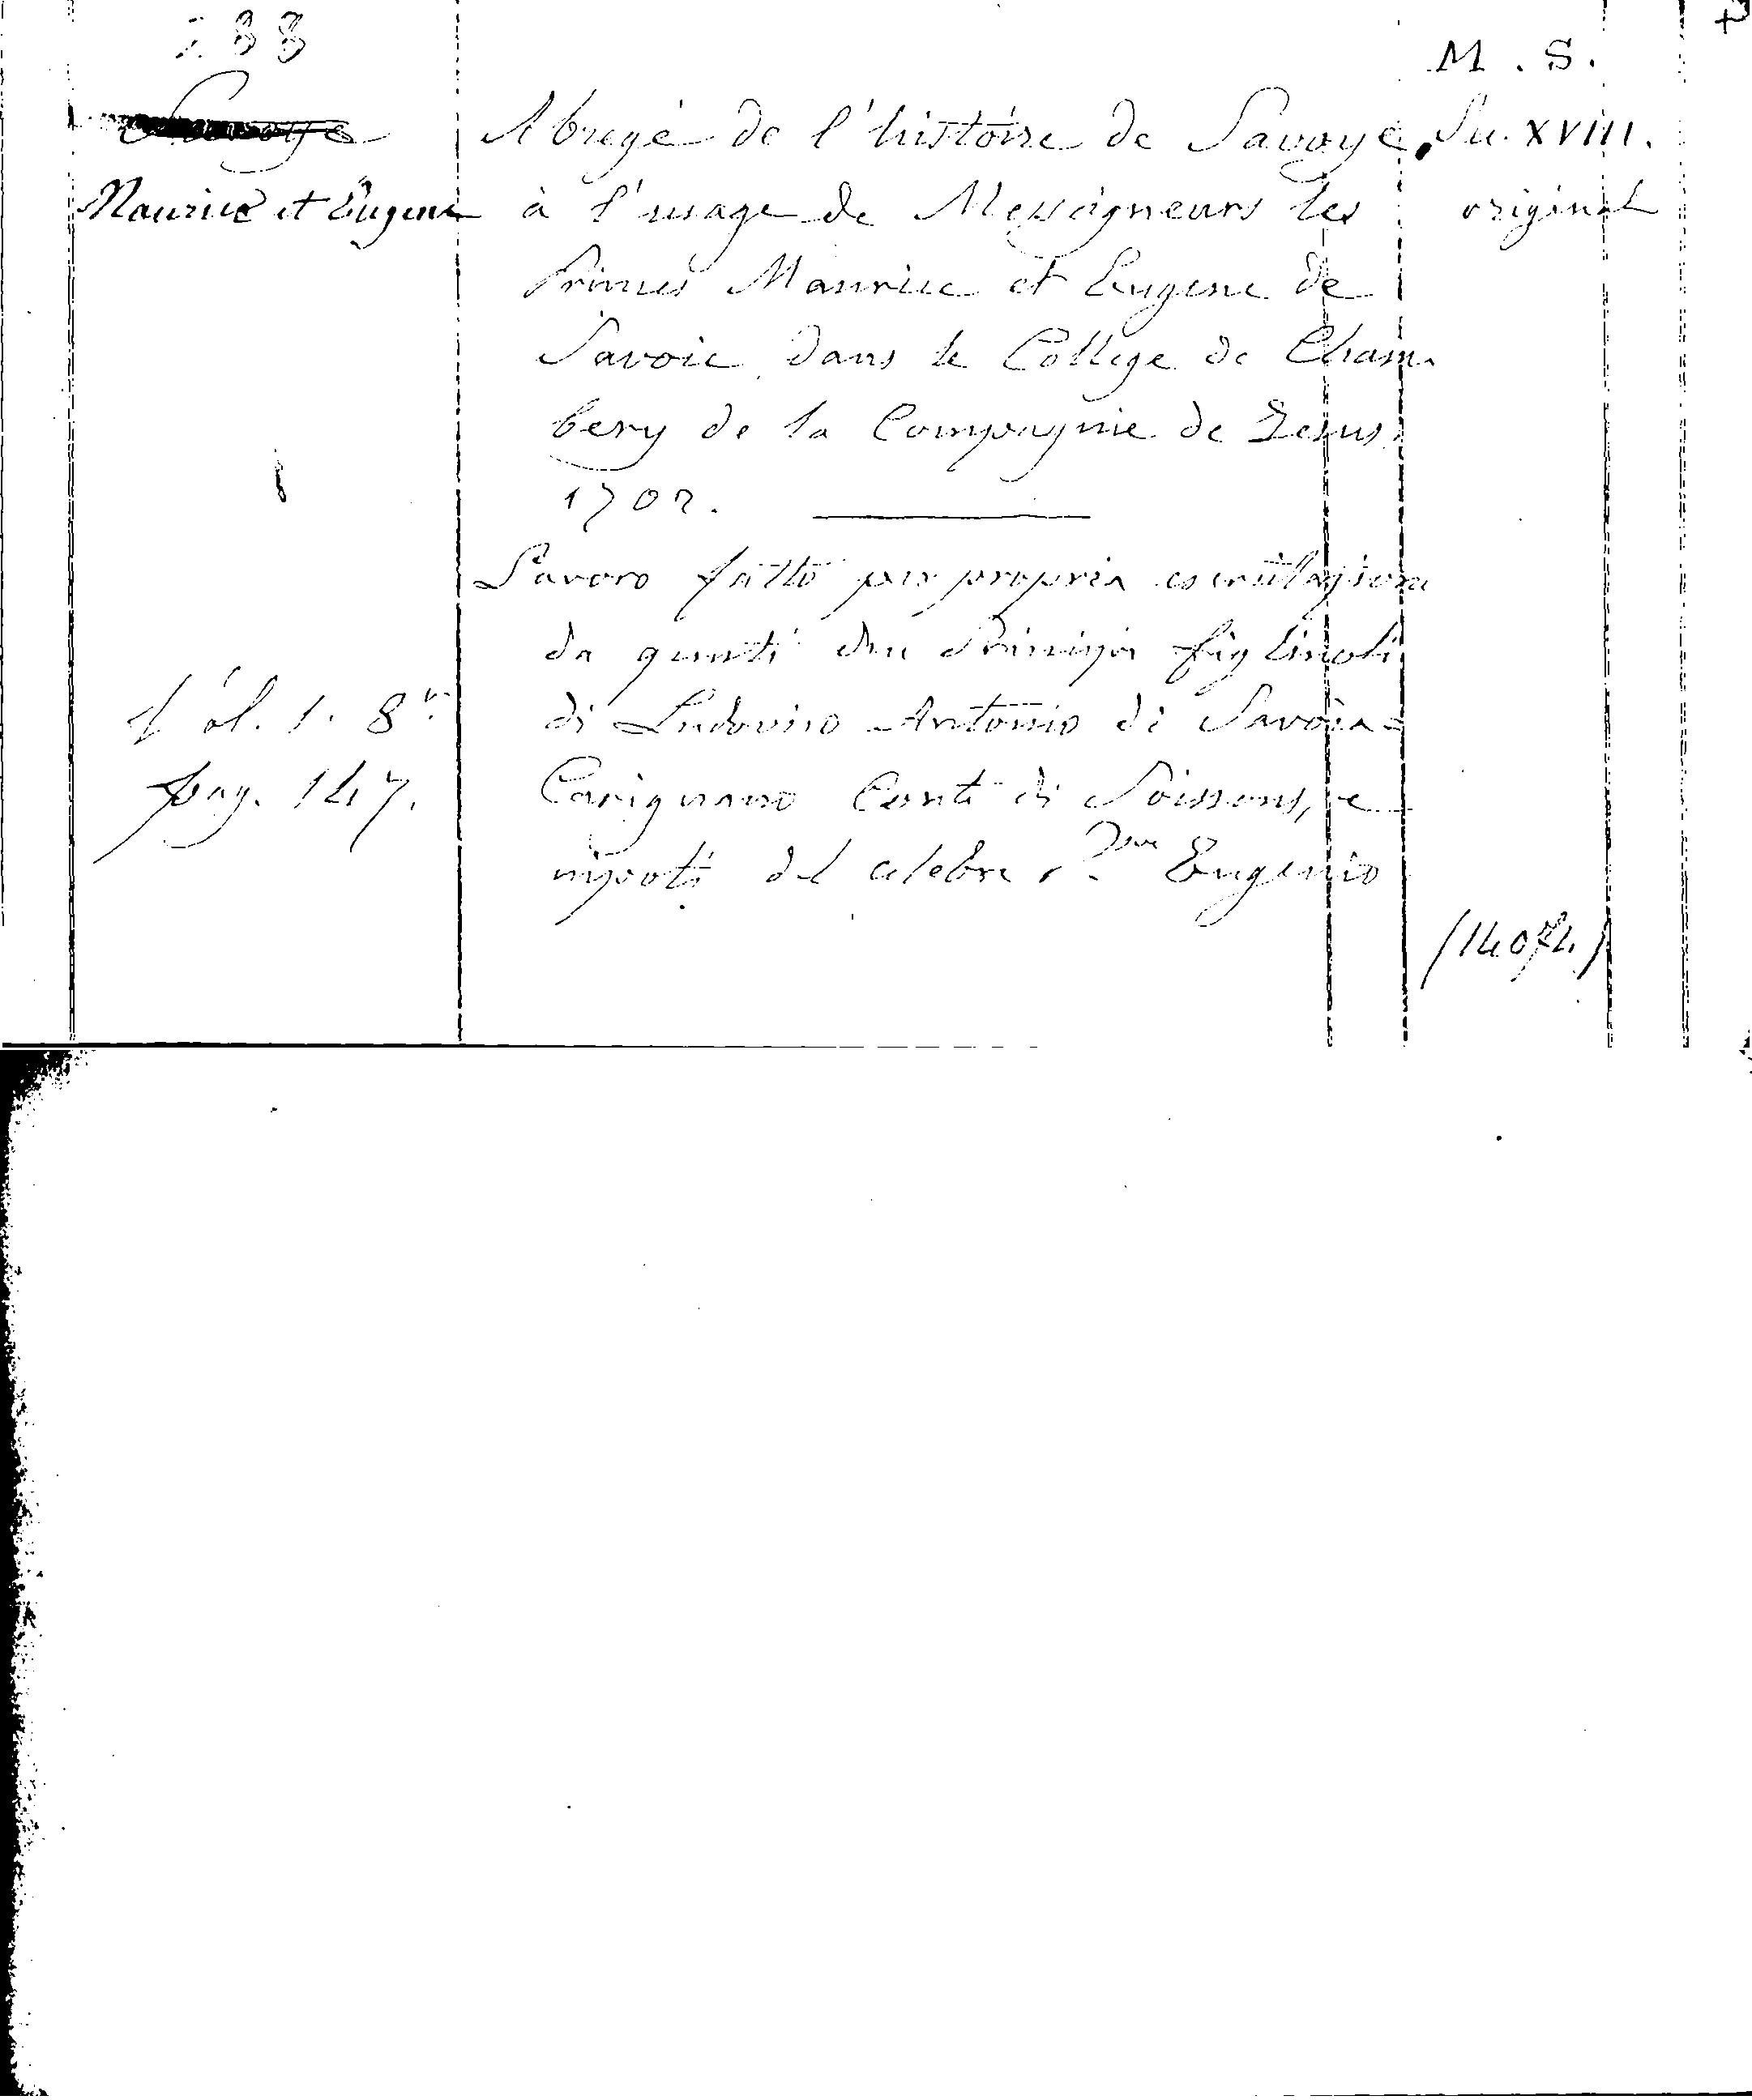 288
M. S.
Savoye
Abregé de l'histoire de Savoye, Sec. XVIII.
Maurice et Eugene
à l'usage de Messeigneurs les
original
Princes Maurice et Eugene de
Savoie dans le College de Cham-
bery de la Compagnie de Jesus
1702.
Lavoro fatto per propria esercitazione
da questi due Principi figliuoli
di Ludovico Antonio di Savoia=
Vol. 1. 8°
Carignano Conte di Soissons, e
pag. 147.
nipoti del celebre Eugenio
(14074)